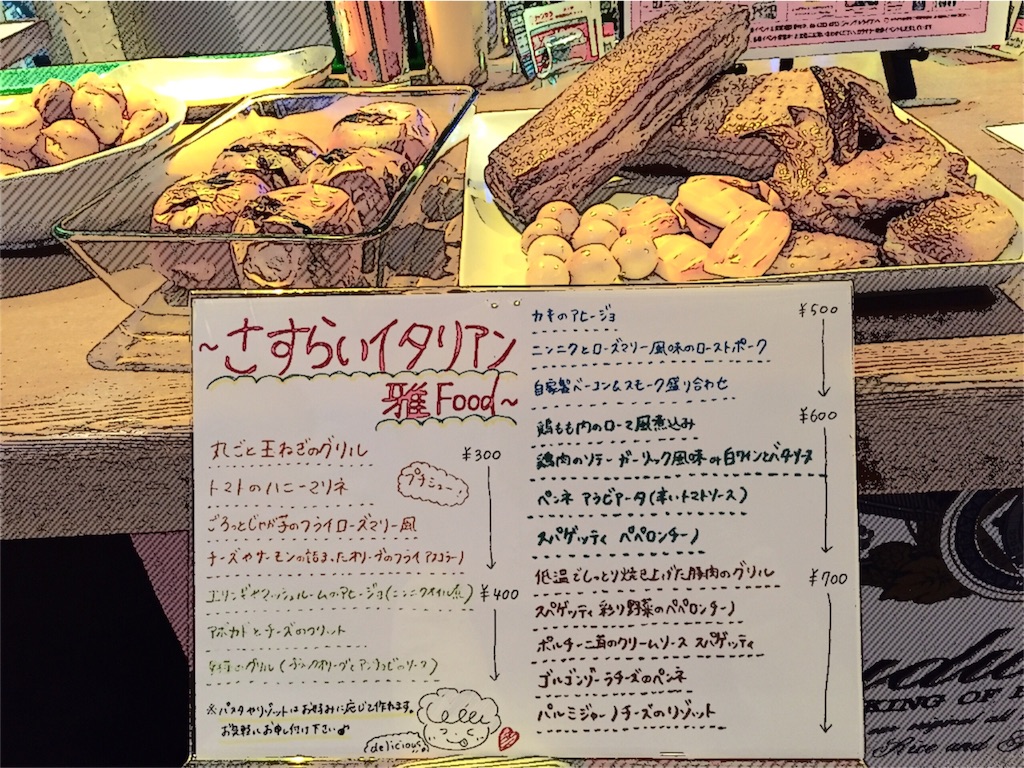 ~さすらいイタリアン
雅Food~
丸ごと玉ねぎのグリル
¥300
トマトのハニーマリネ
プチミュー
ごろっとじゃが芋のフライローズマリー風
チーズやサーモンの詰まったオリーブのフライ アスコラーノ
エリンギやマッシュルームのアヒージョ(ニンニクオイル煮)
¥400
アボカドとチーズのフリット
野菜のグリル(ブラックオリーブとアンチョビのソース)
※パスタやリゾットはお好みに応じて作れます。
お気軽にお申し付け下さい♪
delicious
カキのアヒージョ
¥500
ニンニクとローズマリー風味のローストポーク
自家製ベーコンスモーク盛り合わせ
鶏もも肉のローマ風煮込み
¥600
鶏肉のソテー ガーリック風味 or 白ワインとバターソース
ペンネ アラビアータ(辛いトマトソース)
スパゲッティ ペペロンチーノ
低温でしっとり焼き上げた豚肉のグリル
¥700
スパゲッティ 彩り野菜のペペロンチーノ
ポルチーニ茸のクリームソース スパゲッティ
ゴルゴンゾーラチーズのペンネ
パルミジャーノチーズのリゾット
KING OF